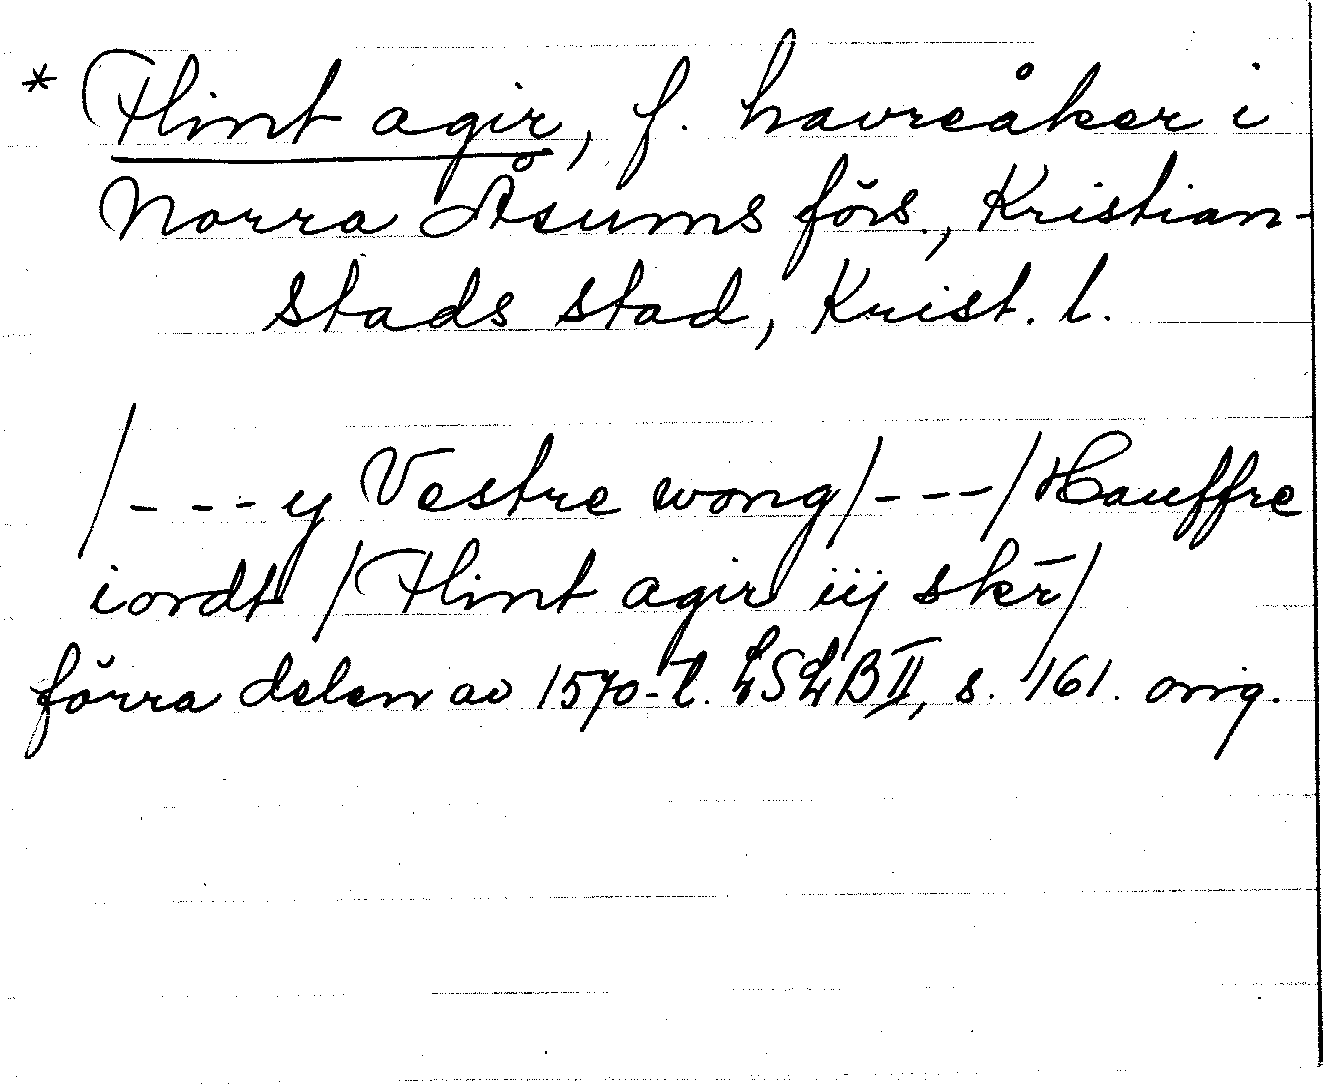 * Flint agir, f. havreåker i
Norra Åsums förs., Kristian-
stads stad, Krist. l.
/---y Vestre wong/---/Hauffre
iordt /Flint agir iij skr̄/
förra delen av 1570-t. LSLB II, s. 161. orig.